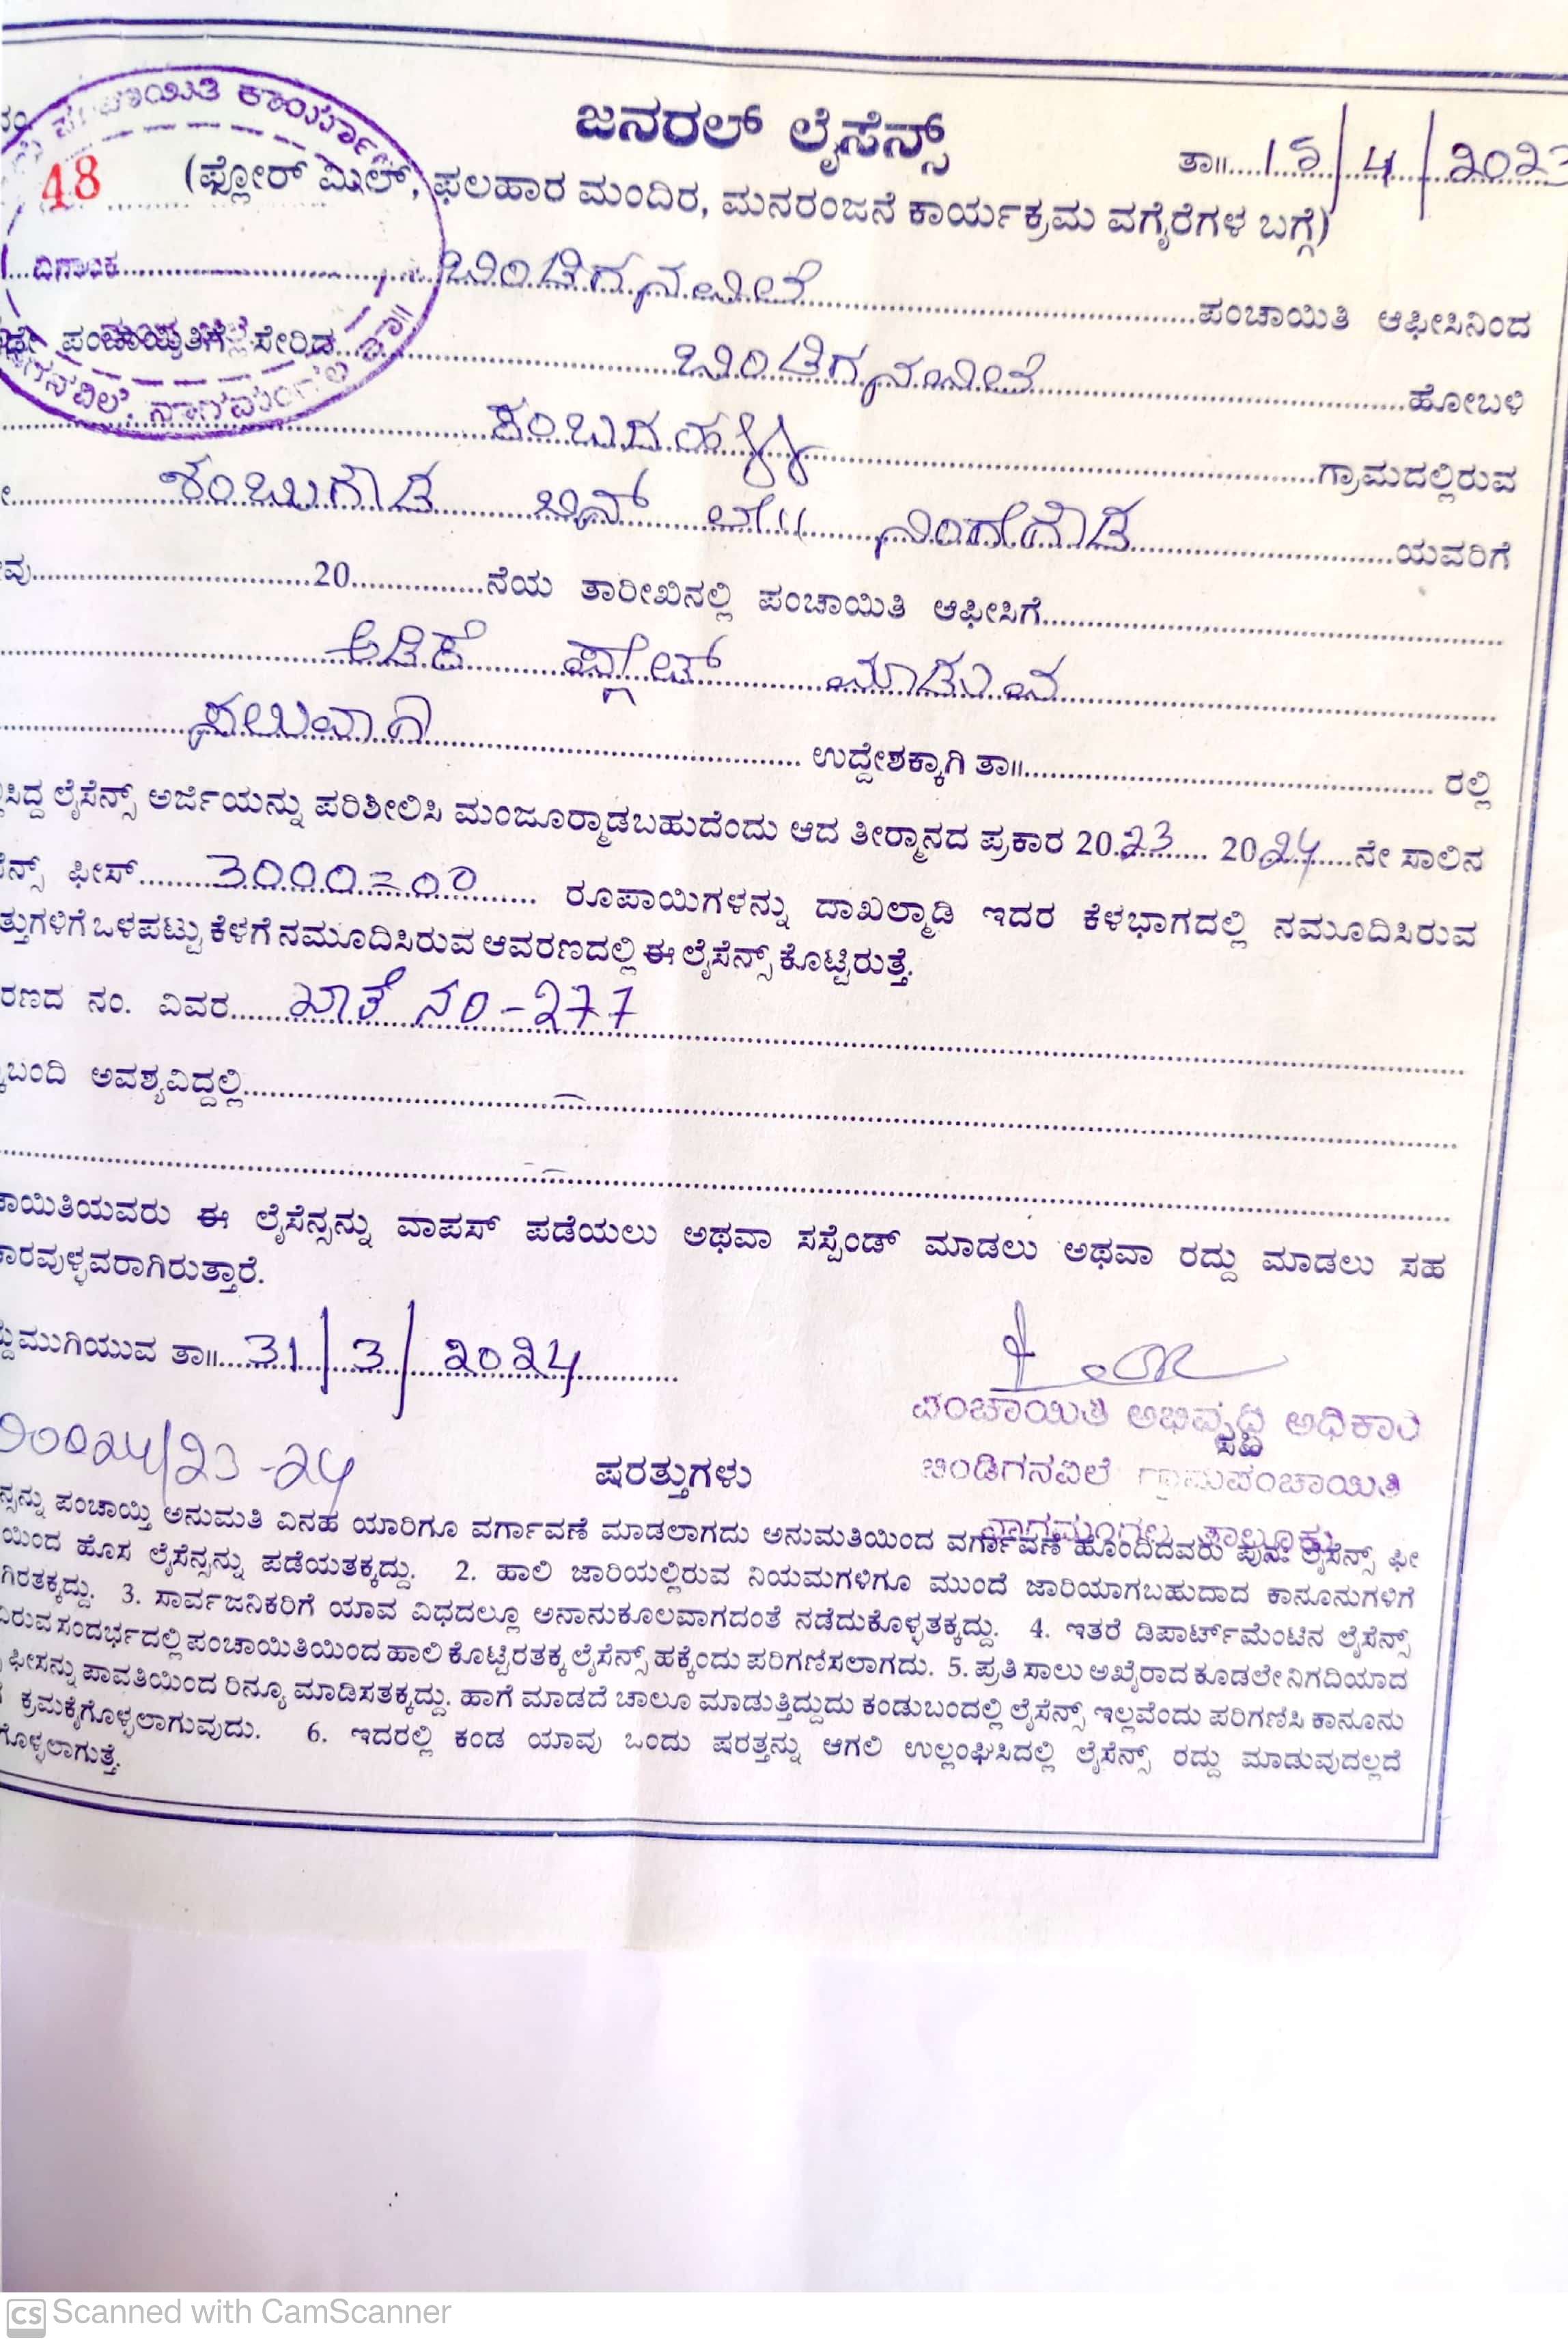 ಜನರಲ್ ಲೈಸೆನ್ಸ್
ತಾ॥ 15/4/2023
48
(ಫ್ಲೋರ್ ಮಿಲ್, ಫಲಹಾರ ಮಂದಿರ, ಮನರಂಜನೆ ಕಾರ್ಯಕ್ರಮ ವಗೈರೆಗಳ ಬಗ್ಗೆ)
ದಿನಾಂಕ ಬಿಂಡಿಗನವಿಲೆ ಪಂಚಾಯಿತಿ ಆಫೀಸಿನಿಂದ
ಪಂಚಾಯ್ತಿಗೆ ಸೇರಿದ ಬಿಂಡಿಗನವಿಲೆ ಹೋಬಳಿ
ಕಂಬದಹಳ್ಳಿ ಗ್ರಾಮದಲ್ಲಿರುವ
ಶಂಬುಗೌಡ ಬಿನ್ ಲೇ॥ ನಿಂಗೇಗೌಡ ಯವರಿಗೆ
20 ನೆಯ ತಾರೀಖಿನಲ್ಲಿ ಪಂಚಾಯಿತಿ ಆಫೀಸಿಗೆ
ಅಡಿಕೆ ಪ್ಲೇಟ್ ಮಾಡುವ
ಸಲುವಾಗಿ ಉದ್ದೇಶಕ್ಕಾಗಿ ತಾ॥ ರಲ್ಲಿ
ಸಿದ್ದ ಲೈಸೆನ್ಸ್ ಅರ್ಜಿಯನ್ನು ಪರಿಶೀಲಿಸಿ ಮಂಜೂರ್‍ಮಾಡಬಹುದೆಂದು ಆದ ತೀರ್‍ಮಾನದ ಪ್ರಕಾರ 2023 2024 ನೇ ಸಾಲಿನ
ನ್ಸ್ ಫೀಸ್ 3000=00 ರೂಪಾಯಿಗಳನ್ನು ದಾಖಲ್ಮಾಡಿ ಇದರ ಕೆಳಭಾಗದಲ್ಲಿ ನಮೂದಿಸಿರುವ
ತ್ತುಗಳಿಗೆ ಒಳಪಟ್ಟು ಕೆಳಗೆ ನಮೂದಿಸಿರುವ ಆವರಣದಲ್ಲಿ ಈ ಲೈಸೆನ್ಸ್ ಕೊಟ್ಟಿರುತ್ತೆ.
ರಣದ ನಂ. ವಿವರ ಖಾತೆ ನಂ-277
ಬಂದಿ ಅವಶ್ಯವಿದ್ದಲ್ಲಿ
ಾಯಿತಿಯವರು ಈ ಲೈಸೆನ್ಸನ್ನು ವಾಪಸ್ ಪಡೆಯಲು ಅಥವಾ ಸಸ್ಪೆಂಡ್ ಮಾಡಲು ಅಥವಾ ರದ್ದು ಮಾಡಲು ಸಹ
ಾರವುಳ್ಳವರಾಗಿರುತ್ತಾರೆ.
ಮುಗಿಯುವ ತಾ॥ 31/3/2024
ಪಂಚಾಯಿತಿ ಅಭಿವೃದ್ಧಿ ಅಧಿಕಾರಿ
ಸಹಿ
23-24
ಷರತ್ತುಗಳು
ಬಿಂಡಿಗನವಿಲೆ ಗ್ರಾಮಪಂಚಾಯಿತಿ
ನಾಗಮಂಗಲ ತಾಲ್ಲೂಕು
ನ್ಸನ್ನು ಪಂಚಾಯ್ತಿ ಅನುಮತಿ ವಿನಹ ಯಾರಿಗೂ ವರ್ಗಾವಣೆ ಮಾಡಲಾಗದು ಅನುಮತಿಯಿಂದ ವರ್ಗಾವಣೆ ಹೊಂದಿದವರು ಪುನಃ ಲೈಸೆನ್ಸ್ ಫೀ
ಯಿಂದ ಹೊಸ ಲೈಸೆನ್ಸನ್ನು ಪಡೆಯತಕ್ಕದ್ದು. 2. ಹಾಲಿ ಜಾರಿಯಲ್ಲಿರುವ ನಿಯಮಗಳಿಗೂ ಮುಂದೆ ಜಾರಿಯಾಗಬಹುದಾದ ಕಾನೂನುಗಳಿಗೆ
ಗಿರತಕ್ಕದ್ದು. 3. ಸಾರ್ವಜನಿಕರಿಗೆ ಯಾವ ವಿಧದಲ್ಲೂ ಅನಾನುಕೂಲವಾಗದಂತೆ ನಡೆದುಕೊಳ್ಳತಕ್ಕದ್ದು. 4. ಇತರೆ ಡಿಪಾರ್ಟ್‌ಮೆಂಟಿನ ಲೈಸೆನ್ಸ್
ವಿರುವ ಸಂದರ್ಭದಲ್ಲಿ ಪಂಚಾಯಿತಿಯಿಂದ ಹಾಲಿ ಕೊಟ್ಟಿರತಕ್ಕ ಲೈಸೆನ್ಸ್ ಹಕ್ಕೆಂದು ಪರಿಗಣಿಸಲಾಗದು. 5. ಪ್ರತಿ ಸಾಲು ಅಖೈರಾದ ಕೂಡಲೇ ನಿಗದಿಯಾದ
ಫೀಸನ್ನು ಪಾವತಿಯಿಂದ ರಿನ್ಯೂ ಮಾಡಿಸತಕ್ಕದ್ದು. ಹಾಗೆ ಮಾಡದೆ ಚಾಲೂ ಮಾಡುತ್ತಿದ್ದುದು ಕಂಡುಬಂದಲ್ಲಿ ಲೈಸೆನ್ಸ್ ಇಲ್ಲವೆಂದು ಪರಿಗಣಿಸಿ ಕಾನೂನು
ಕ್ರಮಕೈಗೊಳ್ಳಲಾಗುವುದು. 6. ಇದರಲ್ಲಿ ಕಂಡ ಯಾವು ಒಂದು ಷರತ್ತನ್ನು ಆಗಲಿ ಉಲ್ಲಂಘಿಸಿದಲ್ಲಿ ಲೈಸೆನ್ಸ್ ರದ್ದು ಮಾಡುವುದಲ್ಲದೆ
ಗೊಳ್ಳಲಾಗುತ್ತೆ.
CS Scanned with CamScanner